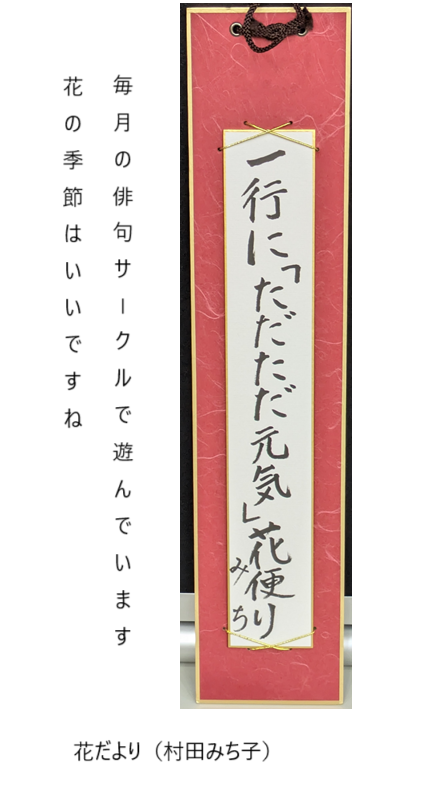 一行に「ただただ元気」花便り
みち
毎月の俳句サークルで遊んでいます
花の季節はいいですね
花だより（村田みち子）